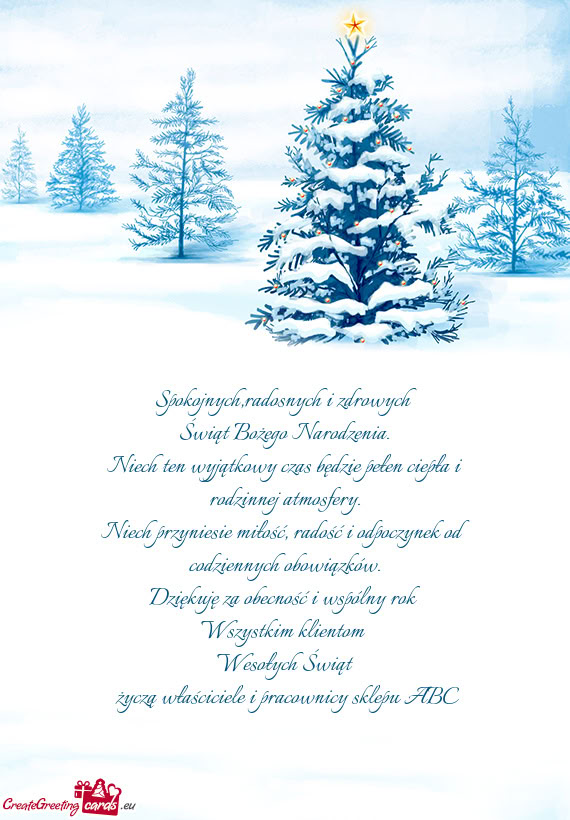 Spokojnych,radosnych i zdrowych
Świąt Bożego Narodzenia.
Niech ten wyjątkowy czas będzie pełen ciepła i
rodzinnej atmosfery.
Niech przyniesie miłość, radość i odpoczynek od
codziennych obowiązków.
Dziękuję za obecność i wspólny rok
Wszystkim klientom
Wesołych Świąt
życzą właściciele i pracownicy sklepu ABC
CreateGreeting cards .eu